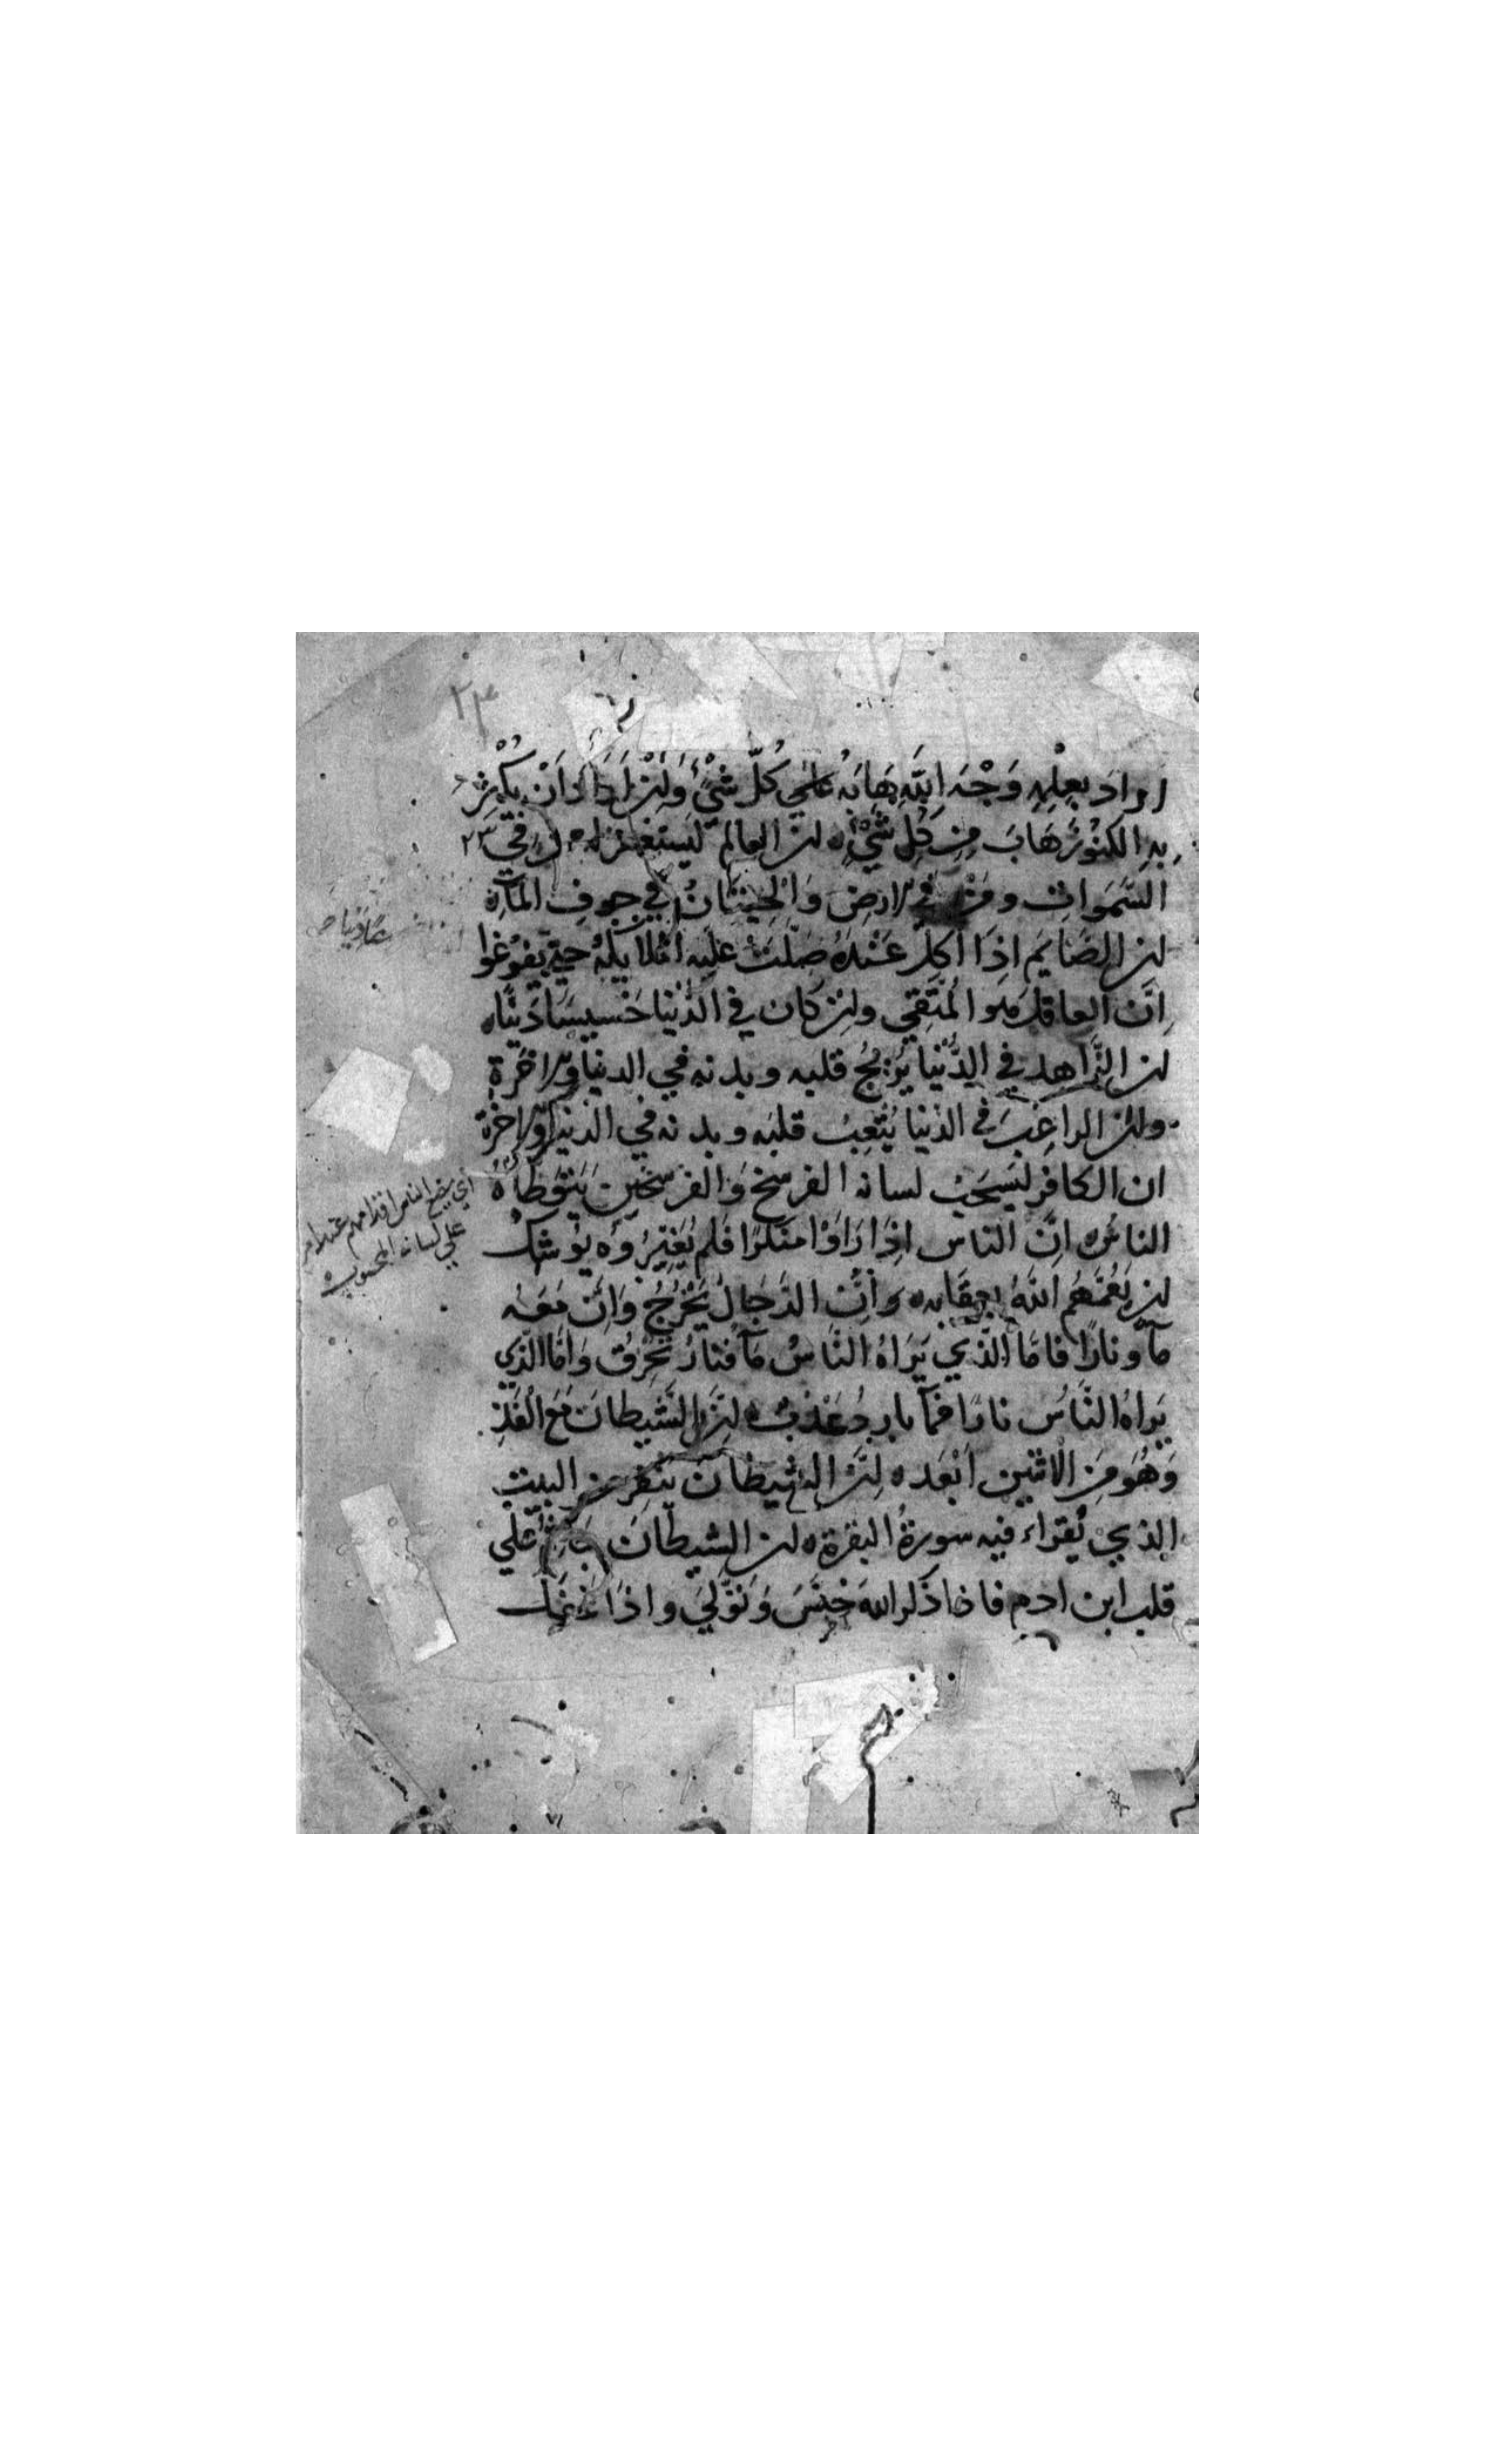 ٢٣
اراد بعلمه وَجْهَ اللّٰهِ هَابَهُ كُلّ شَيْءٍ وَاِنْ اَرَادَ اَنْ يُكْثِرَ
بِهِ الكنُوزَ هَابَ مِن كُلِّ شَيْءٍ ه ان العالم ليستغفر له من في
السَّمَوات ومَنْ في الارض وَالْحِيتَانُ في جوفِ المَآءِ
ان الصَّايمَ اِذَا اُكِلَ عَنْدَهُ صَلَّتْ عليه الملايكةُ حتي يفرُغوا
اِنَّ العاقلَ هو المُتَّقِي وان كان في الدُّنيا خَسيسًا دَنيًّا ه
ان الزَّاهد في الدُّنيا يُريحُ قلبه وبدنه في الدنيا والاخرة
وان الراغبَ في الدنيا يُتْعِبُ قلبَه وبدنه في الدنيا والاخرة
ان الكافر ليَسحَبُ لسانه الفرسخ وَالفرسَخَينِ يَتَوَطَّاهُ
الناسُ ه انَّ الناس اِذَا رَاَوْا منكرًا فَلم يُغَيِّرُوه يُوشكُ
ان يَعُمَّهُم اللّٰهُ بعِقَابه ه وَاِنَّ الدَّجَالَ يَخْرُجُ وَاِنَّ مَعَهُ
مآ ونارًا فامّا الّذي يَرَاهُ النَّاسُ مَآ فنارٌ تُحْرِقُ وَامَّا الذي
يَراهُ النَّاسُ نارًا فمآ باردٌ عَذْبٌ ه اِنَّ الشَّيطانَ مَعَ الْفَذِّ
وَهُوَ مِنَ الاثنين اَبْعَد ه اِنَّ الشيطانَ يَنفِرُ من البيت
الذي يُقراء فيه سورةُ البقرةِ ه ان الشيطانَ جَاثِمٌ علَي
قلب ابن ادم فاذا ذكر اللهَ خَنَسَ وَتَوَلّي واذا
اي يضع الناس اقدامهم
علي لسانه المسحوب